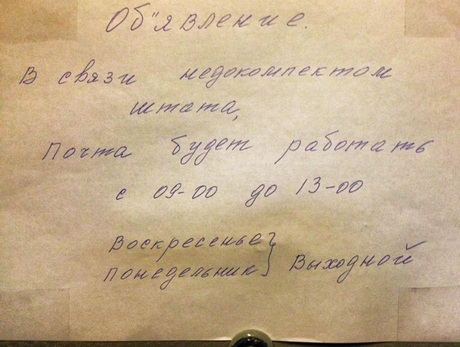 Об"явление.
В связи недокомпектом
штата,
Почта будет работать
с 09-00 до 13-00
Воскресенье
понедельник } Выходной